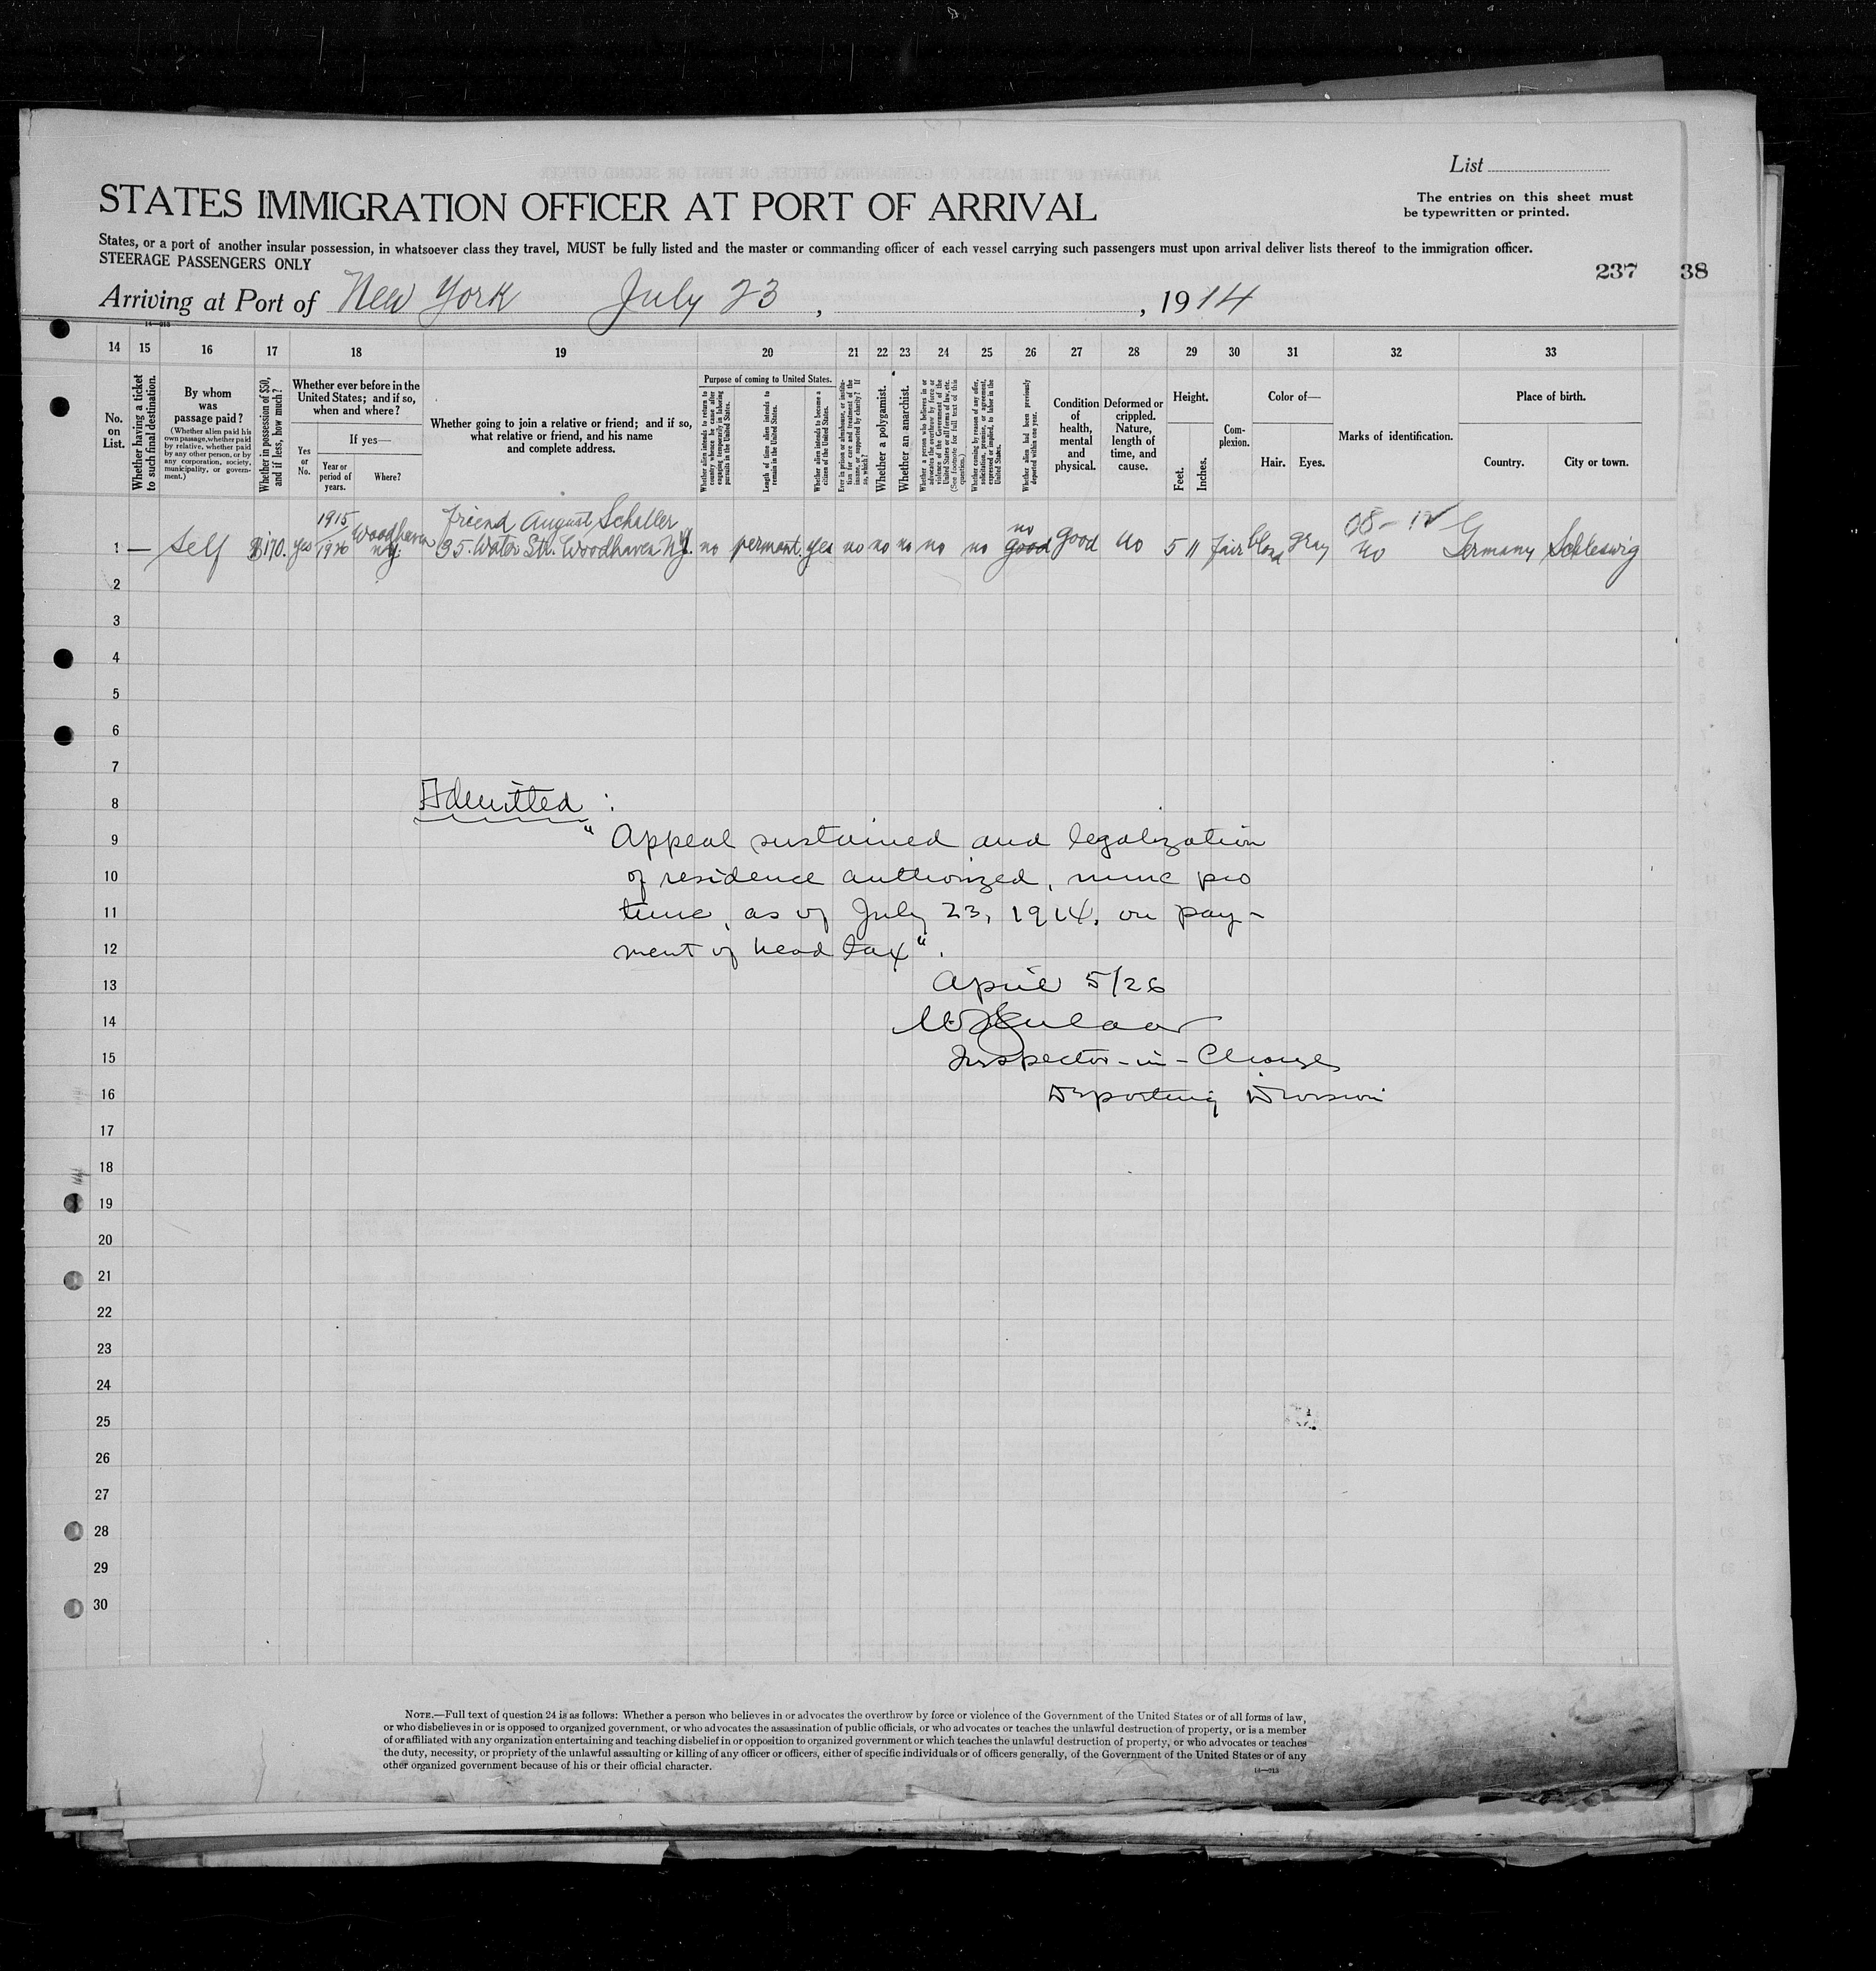 List
STATES IMMIGRATION OFFICER AT PORT OF ARRIVAL
The entries on this sheet must
be typewritten or printed.
States, or a port of another insular possession, in whatsoever class they travel, MUST be fully listed and the master or commanding officer of each vessel carrying such passengers must upon arrival deliver lists thereof to the immigration officer.
STEERAGE PASSENGERS ONLY
237 38
Arriving at Port of New York July 23, , 1914
14 15 16 17 18 19 20 21 22 23 24 25 26 27 28 29 30 31 32 33
No. on List.
Whether having a ticket to such final destination.
By whom was passage paid?
(Whether alien paid his own passage, whether paid by relative, whether paid by any other person, or by any corporation, society, municipality, or government.)
Whether in possession of $50, and if less, how much?
Whether ever before in the United States; and if so, when and where?
Yes or No.
If yes—
Year or period of years.
Where?
Whether going to join a relative or friend; and if so, what relative or friend, and his name and complete address.
Purpose of coming to United States.
Whether alien intends to return to country whence he came after engaging temporarily in laboring pursuits in the United States.
Length of time alien intends to remain in the United States.
Whether alien intends to become a citizen of the United States.
Ever in prison or almshouse, or institution for care and treatment of the insane, or supported by charity? If so, which?
Whether a polygamist.
Whether an anarchist.
Whether a person who believes in or advocates the overthrow by force or violence of the Government of the United States or all forms of law, etc. (See footnote for full text of this question.)
Whether coming by reason of any offer, solicitation, promise, or agreement, expressed or implied, to labor in the United States.
Whether alien had been previously deported within one year.
Condition of health, mental and physical.
Deformed or crippled. Nature, length of time, and cause.
Height.
Feet.
Inches.
Complexion.
Color of—
Hair. Eyes.
Marks of identification.
Place of birth.
Country. City or town.
1915 friend August Schaller no 08-12
1 — self $170. yes 1926 Woodhaven N.Y. 35 Water Str. Woodhaven N.Y. no permant. yes no no no no no good good no 5 11 fair blond gray no Germany Schleswig
2
3
4
5
6
7
8 Admitted :
9 " Appeal sustained and legalization
10 of residence authorized, nunc pro
11 tunc, as of July 23, 1914, on pay-
12 ment of head tax".
13 April 5/26
14
15 Inspector-in-Charge
16 Deporting Division
17
18
19
20
21
22
23
24
25
26
27
28
29
30
NOTE.—Full text of question 24 is as follows: Whether a person who believes in or advocates the overthrow by force or violence of the Government of the United States or of all forms of law,
or who disbelieves in or is opposed to organized government, or who advocates the assassination of public officials, or who advocates or teaches the unlawful destruction of property, or is a member
of or affiliated with any organization entertaining and teaching disbelief in or opposition to organized government or which teaches the unlawful destruction of property, or who advocates or teaches
the duty, necessity, or propriety of the unlawful assaulting or killing of any officer or officers, either of specific individuals or of officers generally, of the Government of the United States or of any
other organized government because of his or their official character.
14—213